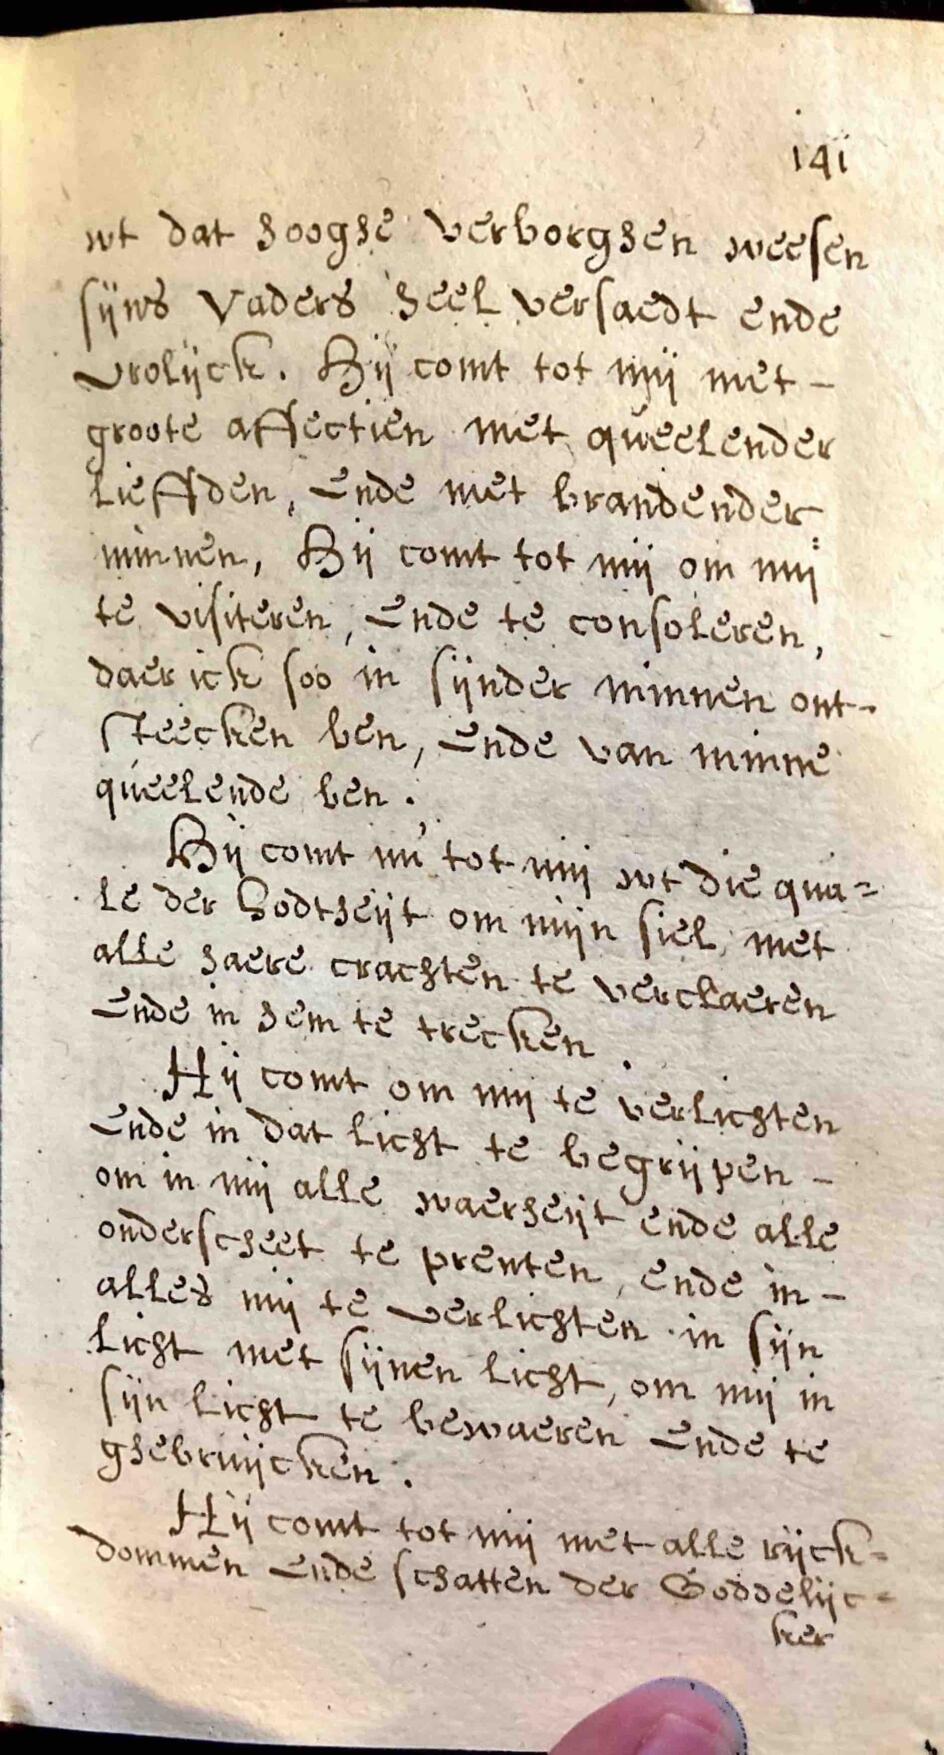 141
wt dat hooghe verborghen weesen
sijns Vaders heel versaedt ende
vrolijck. Hij comt tot mij met -
groote affectien met queelender
lieffden, ende met brandender
minnen, Hij comt tot mij om mij
te visiteren, ende te consoleren,
daer ick soo in sijnder minnen ont-
steecken ben, ende van minne
queelende ben.
Hij comt nu tot mij wt die qua=
le der Godtheijt om mijn siel, met
alle haere crachten te verclaeren
ende in hem te trecken.
Hij comt om mij te verlichten
ende in dat licht te begrijpen -
om in mij alle waerheijt ende alle
onderscheet te prenten, ende in -
alles mij te verlichten in sijn
licht met sijnen licht, om mij in
sijn licht te bewaeren ende te
ghebruijcken.
Hij comt tot mij met alle rijck=
dommen ende schatten der Goddelijc=
ker